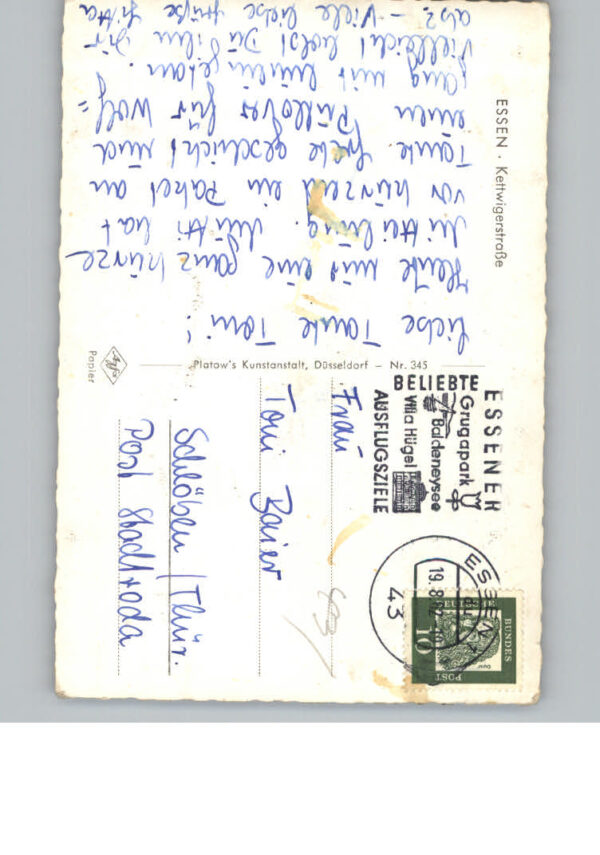 ESSEN · Kettwigerstraße
Liebe Tante Toni!
Heute nur eine ganz kurze
Mitteilung. Mutti hat
vor kurzem ein Paket an
Tante Grete geschickt und
einen Pullover für Wolf=
gang mit hinein getan.
Vielleicht holst Du ihn Dir
ab? – Viele liebe Grüße
Platow's Kunstanstalt, Düsseldorf – Nr. 345
Agfa
Papier
ESSENER
Grugapark
Baldeneysee
Villa Hügel
BELIEBTE
AUSFLUGSZIELE
ESSEN
19.8.62
43
DEUTSCHE
BUNDES
POST
10
Frau
Toni Baier
Schlöben / Thür.
Post Stadtroda